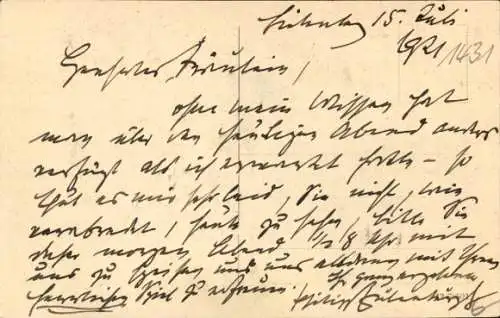 Liebenberg 15. Juli
1921
1431
Geehrtes Fräulein,
ohne mein Wissen hat
man über den heutigen Abend anders
verfügt als ich erwartet hatte – so
thut es mir sehr leid, Sie nicht, wie
verabredet, heute zu sehen, bitte Sie
daher morgen Abend 1/2 8 Uhr mit
uns zu speisen und uns alsdann mit Ihrem
herrlichen Spiel zu erfreuen. Ihr ganz ergebener
Philipp Eulenburg